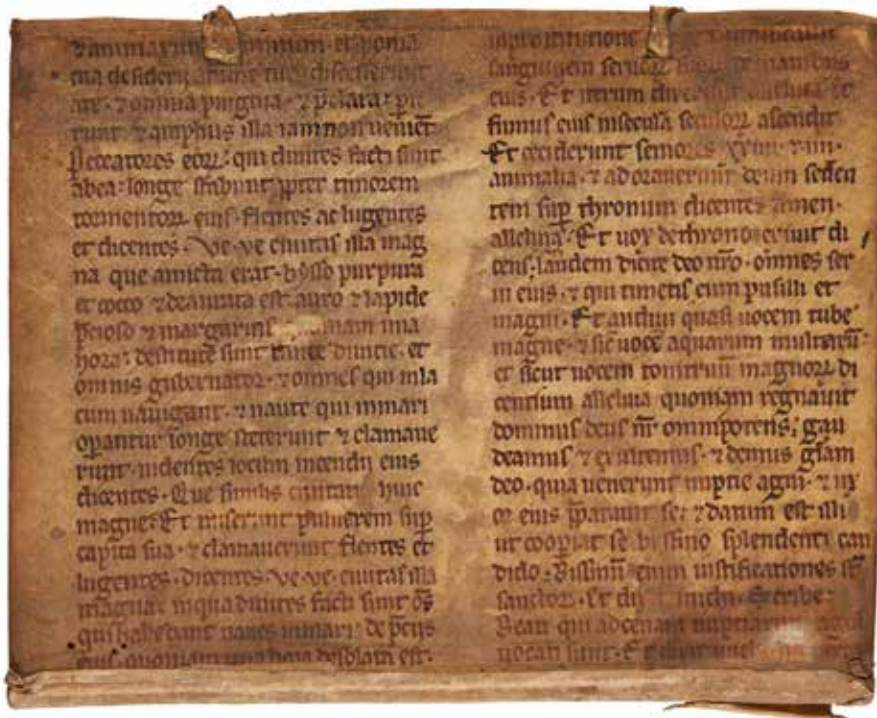 ⁊ animarum hominum · et poma
tua desiderij anime tue discesserunt
a te · ⁊ omnia pinguia · ⁊ p̄clara : pie
runt ⁊ amplius illa iam non ueniet̄
peccatores eoꝝ : qui diuites facti sunt
ab ea : longe stabunt ꝓpter timorem
tormentoꝝ eius · flentes ac lugentes
et dicentes · Ve · ve ciuitas illa mag
na que amicta erat · bysso purpura
et cocco ⁊ deaurata est auro ⁊ lapide
p̄cioso ⁊ margaritis quoniam una
hora : destitute sunt tante diuicie · et
omnis gubernator · ⁊ omnes qui in la
cum nauigant · ⁊ naute qui in mari
oꝑantur longe steterunt ⁊ clamaue
runt · uidentes locum incendij eius
dicentes · Que similis ciuitati huic
magne · Et miserunt puluerem sup̄
capita sua · ⁊ clamauerunt flentes et
lugentes · dicentes · ve · ve · ciuitas illa
magna : in qua diuites facti sunt om̄s
qui habebant naues in mari : de p̄cijs
eius · quoniam una hora desolata est ·
in prostitutione ⁊ uindicauit
sanguinem seruoꝝ suoꝝ de manibus
eius · Et iterum dixerunt alleluia Et
fumus eius in secula seculoꝝ ascendit
Et ceciderunt seniores xxiiii · ⁊ iiii ·
animalia · ⁊ adorauerunt deum seden
tem sup̄ thronum dicentes amen ·
alleluia · Et uox de throno exiuit di
cens · laudem dicite deo nr̄o · omnes ser
ui eius · ⁊ qui timetis eum pusilli et
magni · Et audiui quasi uocem tube
magne · ⁊ sic̄ uocē aquarum multarū :
et sicut uocem tonitruū magnoꝝ di
centium alleluia quoniam regnauit
dominus deus nr̄ omnipotens ; gau
deamus ⁊ exultemus · ⁊ demus gl̄am
deo · quia uenerunt nuptie agni · ⁊ ux
or eius p̄parauit se : ⁊ datum est illi
ut coopiat se bissino splendenti can
dido : Bissinū enim iustificationes sūt
sanctoꝝ · Et dixit michi · Scribe :
Beati qui ad cenam nuptiarum agni
uocati sunt · Et dixit